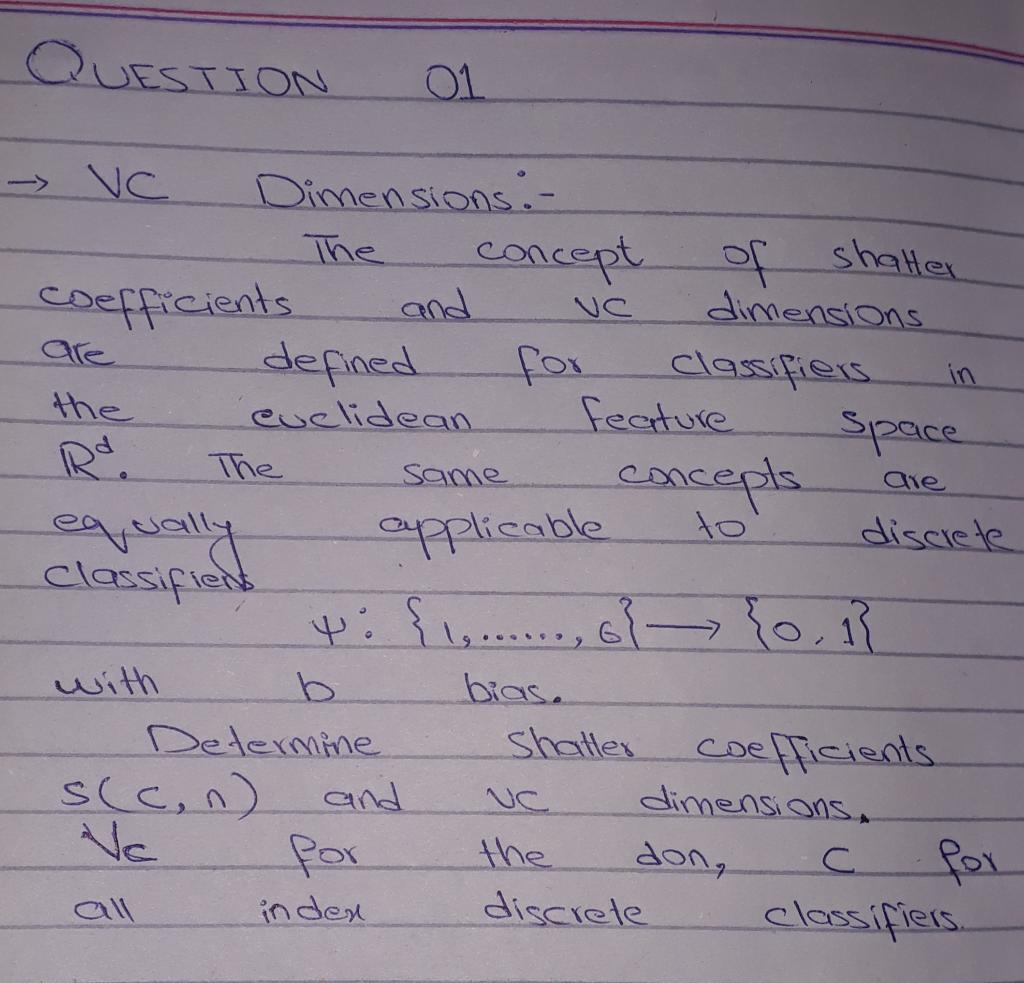 QUESTION 01
→ VC Dimensions:-
The concept of shatter
coefficients and VC dimensions
are defined for classifiers in
the euclidean feature space
ℝᵈ. The same concepts are
equally applicable to discrete
classifiers
ψ: {1,......., 6} → {0, 1}
with b bias.
Determine Shatter coefficients
S(C, n) and VC dimensions,
Vc for the don, C for
all index discrete classifiers.